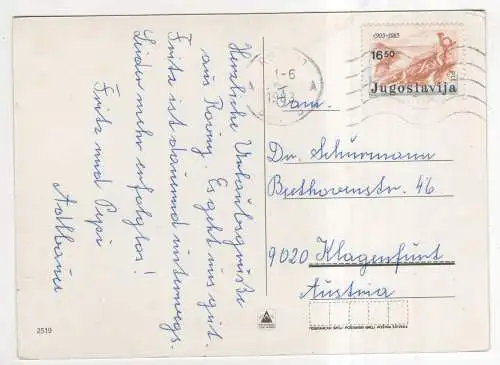 Herzliche Urlaubsgrüße
aus Rovinj. Es geht uns gut.
Fritz ist dauernd unterwegs.
Leider mehr erfolglos!
Fritz und Pepi
1903-1983
16.50
Jugoslavija
1-6
Fam.
Dr. Schürmann
Beethovenstr. 46
9020 Klagenfurt
Austria
2519